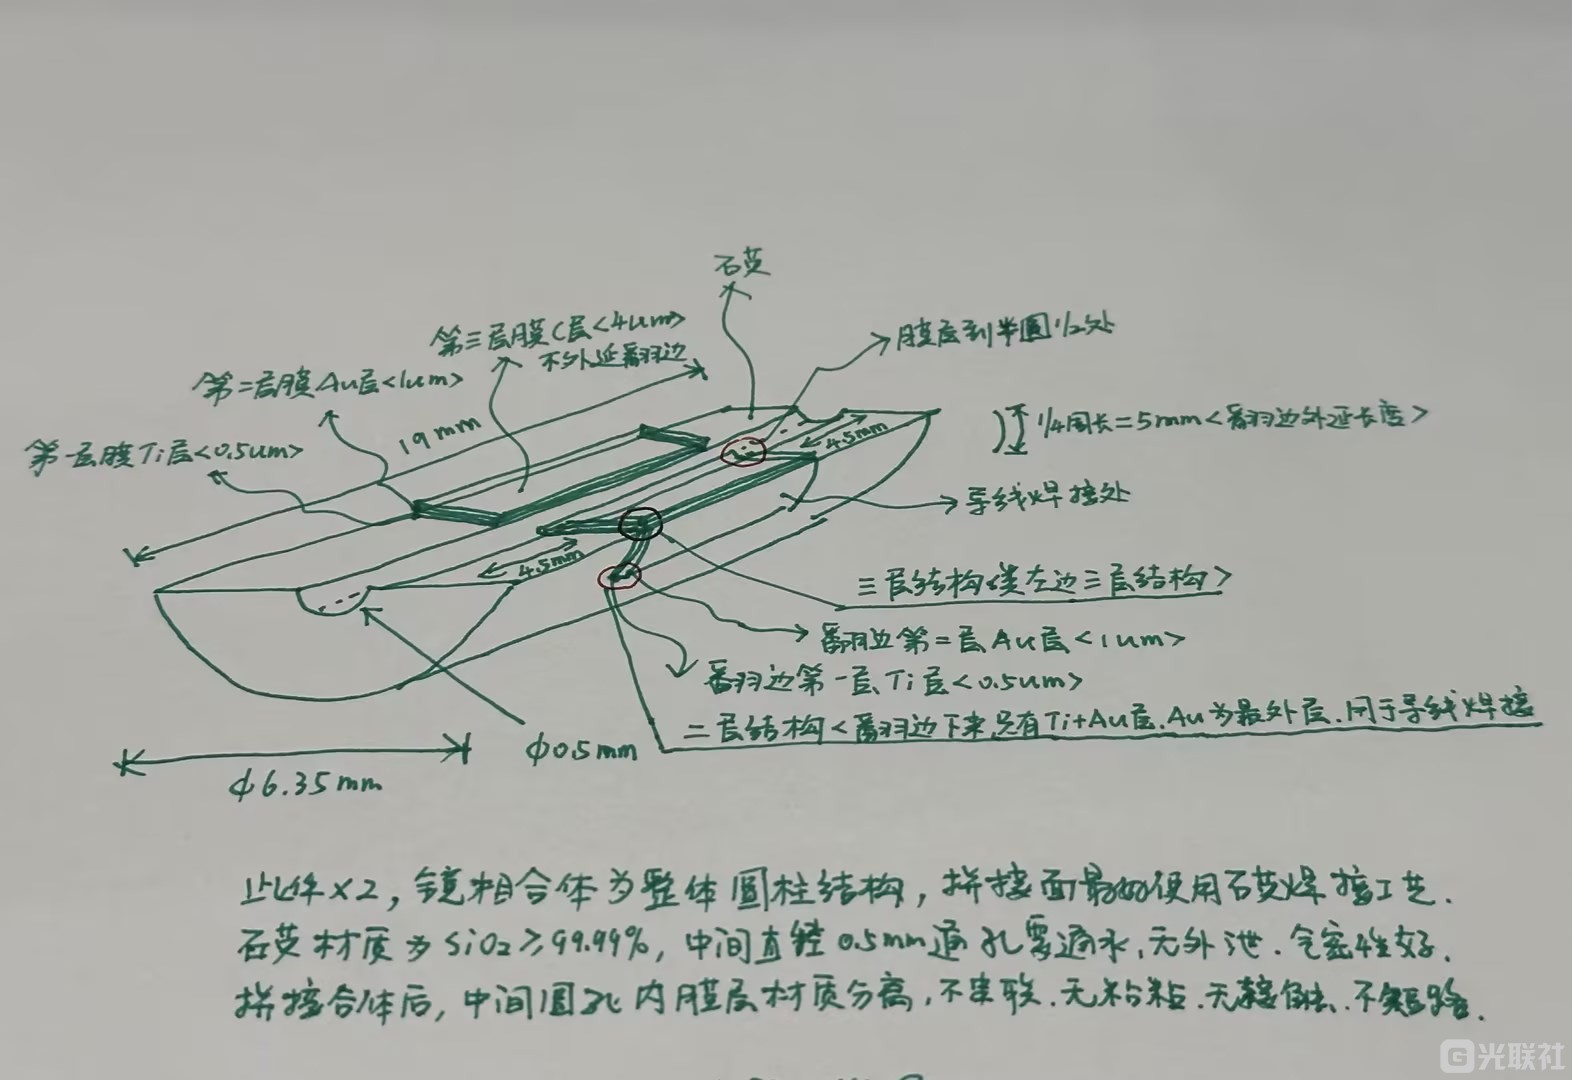 石英
第三层膜C层<4um>
不外延翻边
膜层到半圆1/2处
第二层膜Au层<1um>
19mm
第一层膜Ti层<0.5um>
4.5mm
1/4周长=5mm<翻边外延长度>
导线焊接处
4.5mm
三层结构<类左边三层结构>
翻边第二层Au层<1um>
翻边第一层Ti层<0.5um>
二层结构<翻边下来只有Ti+Au层.Au为最外层.用于导线焊接
ϕ0.5mm
ϕ6.35mm
此件×2,镜相合体为整体圆柱结构,拼接面最好使用石英焊接工艺.
石英材质为SiO2≥99.99%,中间直径0.5mm通孔需通水,无外泄.气密性好.
拼接合体后,中间圆孔内膜层材质分离,不串联.无粘粘.无接触.不短路.
G光联社